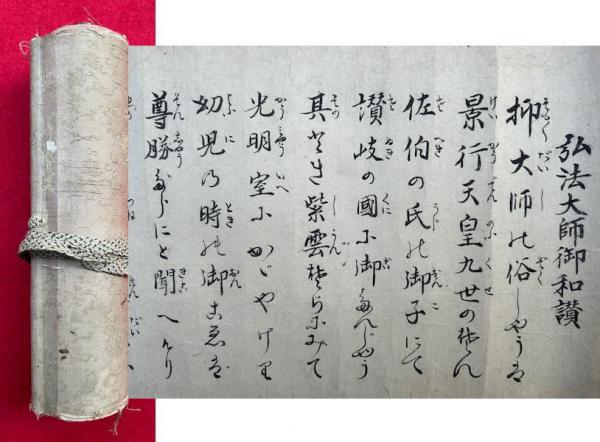 弘法大師御和讃
抑大師の俗しやうは
景行天皇九世の
佐伯の氏の御子にて
讃岐の國に御たんじやう
其とき紫雲そらにみて
光明室にかゞやけり
幼児の時の御こゑは
尊勝だらにと聞へけり